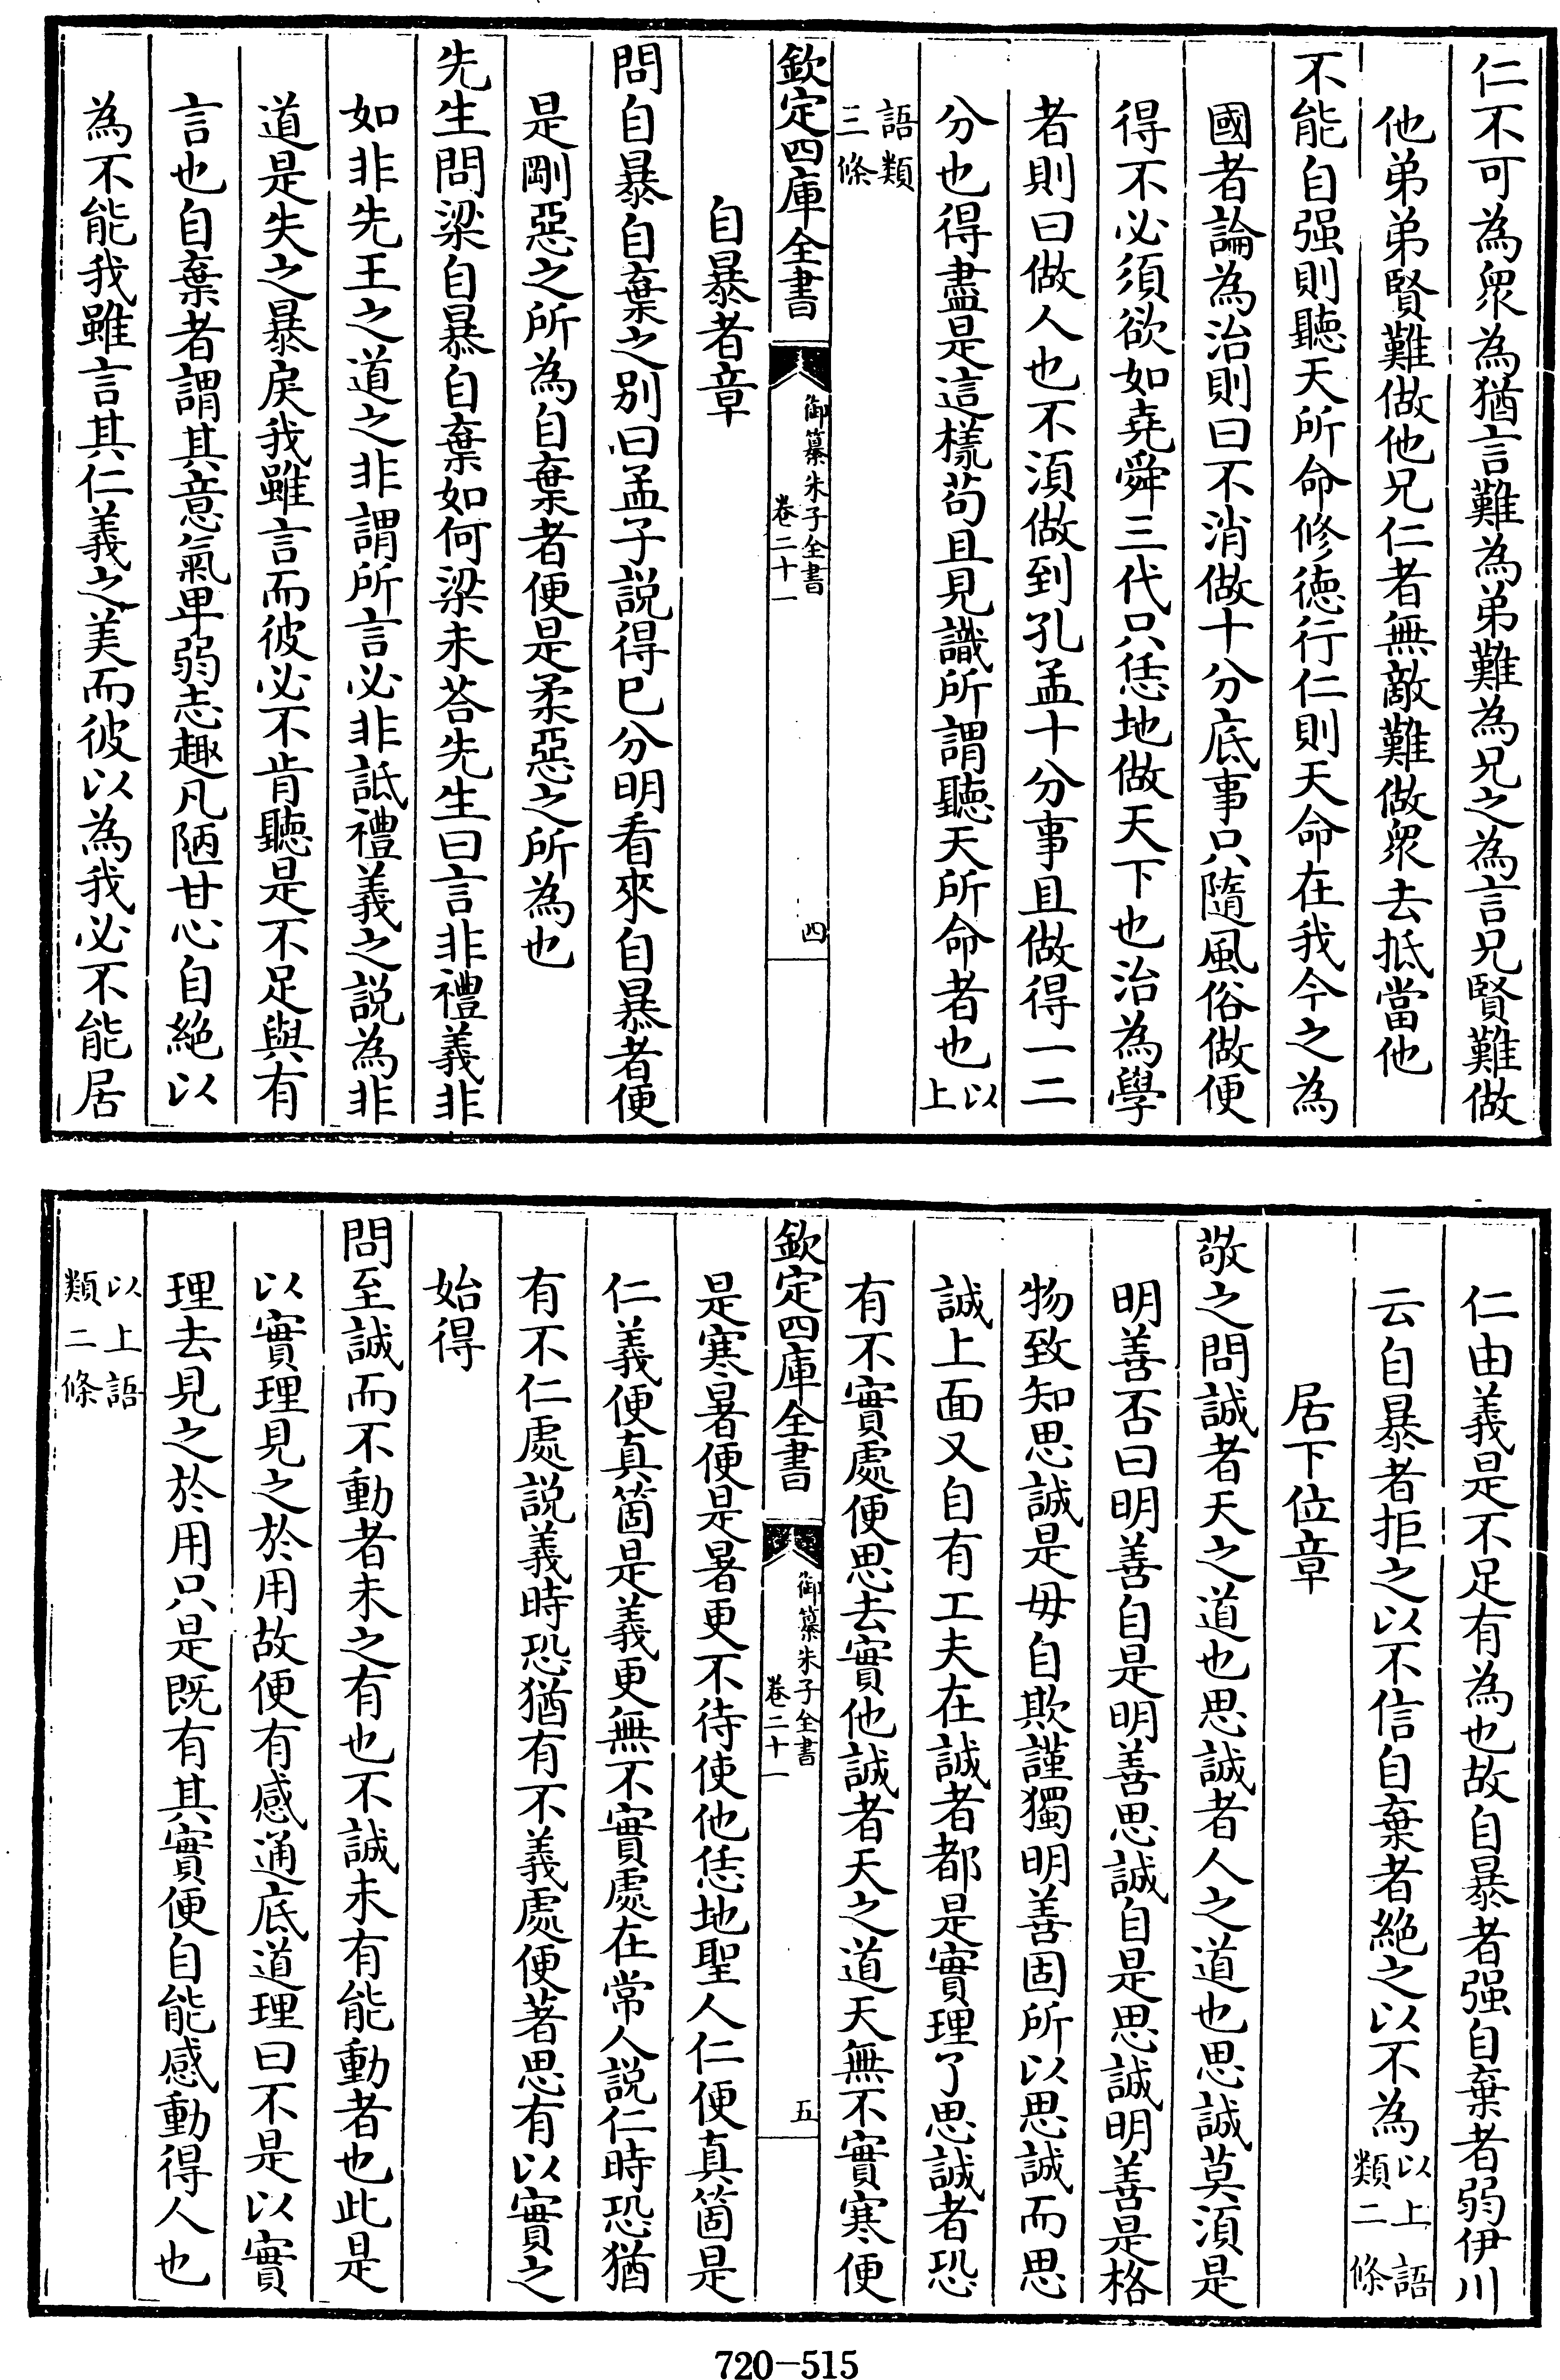 仁不可為衆為猶言難為弟難為兄之為言兄賢難做
他弟弟賢難做他兄仁者無敵難做衆去抵當他
不能自强則聽天所命修德行仁則天命在我今之為
國者論為治則曰不消做十分底事只隨風俗做便
得不必須欲如堯舜三代只恁地做天下也治為學
者則曰做人也不須做到孔孟十分事且做得一二
分也得盡是這樣苟且見識所謂聽天所命者也以上
語類三條
欽定四庫全書
御纂朱子全書
卷二十一
四
自暴者章
問自暴自棄之别曰孟子説得已分明看來自暴者便
是剛惡之所為自棄者便是柔惡之所為也
先生問梁自暴自棄如何梁未荅先生曰言非禮義非
如非先王之道之非謂所言必非詆禮義之説為非
道是失之暴戾我雖言而彼必不肯聽是不足與有
言也自棄者謂其意氣卑弱志趣凡陋甘心自絶以
為不能我雖言其仁義之美而彼以為我必不能居
仁由義是不足有為也故自暴者强自棄者弱伊川
云自暴者拒之以不信自棄者絶之以不為以上語類二條
居下位章
敬之問誠者天之道也思誠者人之道也思誠莫須是
明善否曰明善自是明善思誠自是思誠明善是格
物致知思誠是毋自欺謹獨明善固所以思誠而思
誠上面又自有工夫在誠者都是實理了思誠者恐
有不實處便思去實他誠者天之道天無不實寒便
欽定四庫全書
御纂朱子全書
卷二十一
五
是寒暑便是暑更不待使他恁地聖人仁便真箇是
仁義便真箇是義更無不實處在常人説仁時恐猶
有不仁處説義時恐猶有不義處便著思有以實之
始得
問至誠而不動者未之有也不誠未有能動者也此是
以實理見之於用故便有感通底道理曰不是以實
理去見之於用只是既有其實便自能感動得人也
以上語類二條
720-515